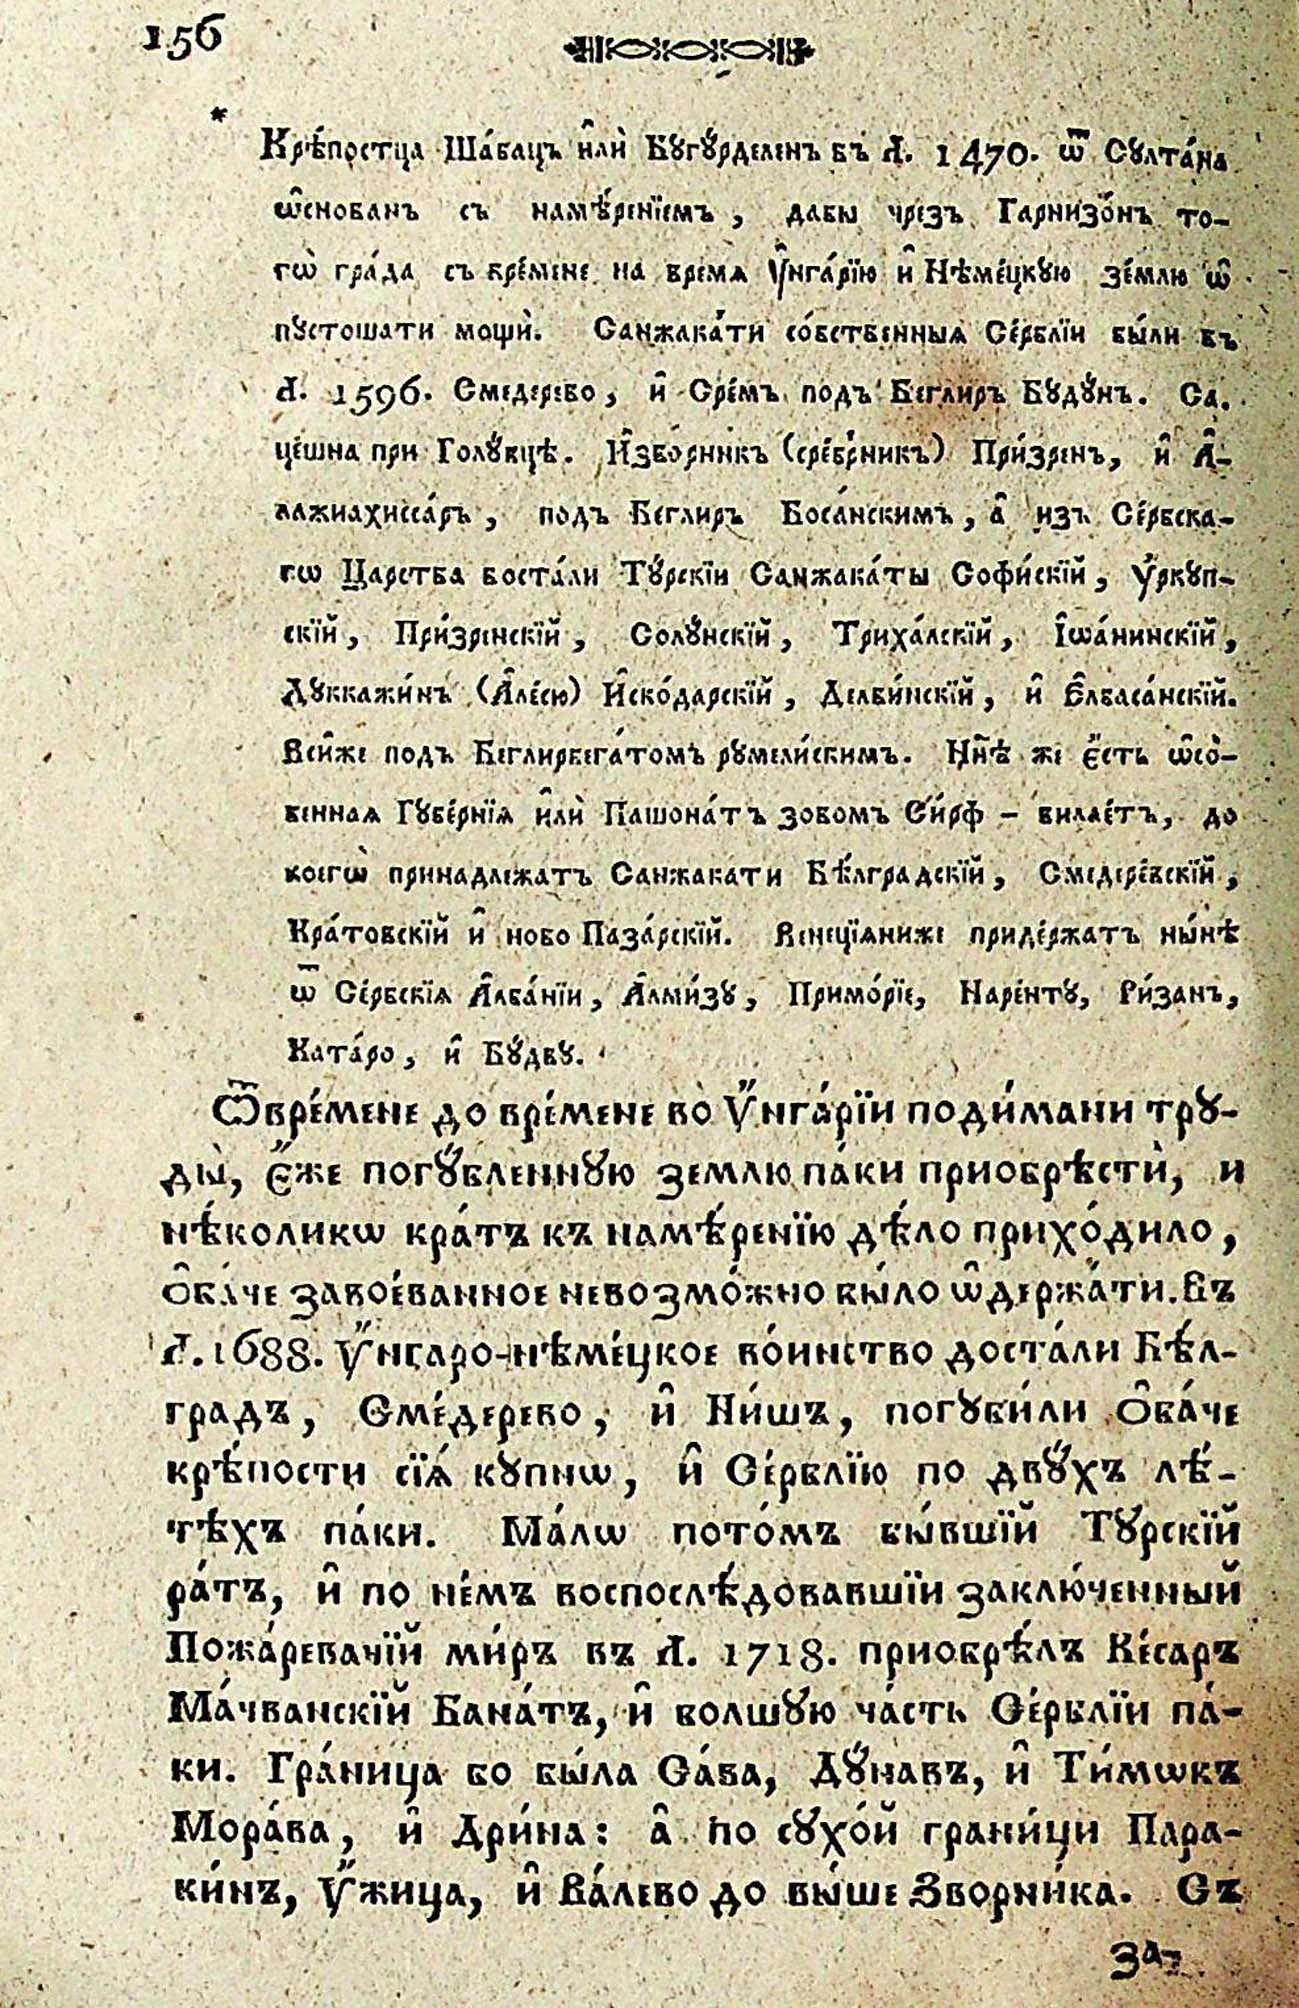 156
*
Крѣ́постца Ша́бацъ и҆лѝ Бꙋгꙋ́рделенъ въ Л. 1470. ѿ Сꙋлта́на
ѡ҆снованъ съ намѣ́ренїемъ, дабы чрезъ Гарнизо́нъ то-
гѡ̀ гра́да съ вре́мене на время Ꙋ҆нга́рїю и҆ Нѣме́цкꙋю зе́млю ѡ҆
пꙋстошати мощѝ. Санжака́ти со́бственныя Се́рблїи бы́ли въ
Л. 1596. Смедерево, и҆ Сре́мъ подъ Беглиръ Бꙋдꙋ́нъ. Са.
це́шна при Голꙋ́бцѣ. И҆зво́рникъ (сре́брникъ) При́зренъ, и҆ А҆-
лажиахисса́ръ, подъ Беглиръ Боса́нскимъ, а҆ изъ Се́рбска-
гѡ Царства воста́ли Тꙋ́рскїи Санжака́ты Софи́скїй, Ꙋ҆́ркꙋп-
скїй, При́зренскїй, Солꙋ́нскїй, Триха́лскїй, І҆ѡа́нинскїй,
Дꙋккажи́нъ (А҆ле́сю) И҆ско́дарскїй, Делви́нскїй, и҆ Е҆лбаса́нскїй.
Вси́же подъ Беглирбега́томъ рꙋмели́скимъ. Нн҃ѣ же є҆́сть ѡ҆со̀-
бенная Гꙋбе́рнїя и҆лѝ Пашона́тъ зовомъ Си́рф - вилае́тъ, до
коегѡ̀ принадлежатъ Санжакати Бѣ́лградскїй, Смедере́вскїй,
Кра́товскїй и҆ ново Паза́рскїй. Венецїяниже приде́ржатъ ны́нѣ
ѿ Се́рбскїя А҆лба́нїи, А҆лми́зꙋ, Примо́рїе, Наре́нтꙋ, Ри́занъ,
Ката́ро, и҆ Бꙋ́двꙋ.
Ѿвре́мене до вре́мене во̀ Ꙋ҆́нга́рїи поди́мани трꙋ-
ды̀, є҆́же погꙋ́бленнꙋю землю па́ки приобрѣстѝ, и
нѣ́коликѡ кра́тъ къ намѣ́ренїю дѣ́ло прихо́дило,
О҆ба́че завое́ванное невозмо́жно бы́ло ѡ҆держа́ти. Въ
Л. 1688. Ꙋ҆́нгаро-нѣме́цкое во́инство доста́ли Бѣ́л-
градъ, Сме́дерево, и҆ Ни́шъ, погꙋби́ли О҆ба́че
крѣ́пости сїя́ кꙋпнѡ, и҆ Се́рблїю по двꙋ́хъ лѣ́-
тѣхъ па́ки. Ма́лѡ пото́мъ бы́вшїй Тꙋрскїй
ра́тъ, и҆ по не́мъ воспослѣ́довавшїи заклю́ченный
Пожа́ревачїй ми́ръ въ Л. 1718. приобрѣ́лъ Ке́саръ
Ма́чванскїй Бана́тъ, и҆ болшꙋю ча́сть Се́рблїи па́-
ки. Гра́ница бо бы́ла Са́ва, Дꙋ́навъ, и҆ Ти́мѡкъ
Мора́ва, и҆ Дри́на: а҆ по сꙋхо́й грани́ци Пара-
ки́нъ, Ꙋ҆́жица, и҆ Ва́лево до вы́ше Зворни́ка. Съ
за-